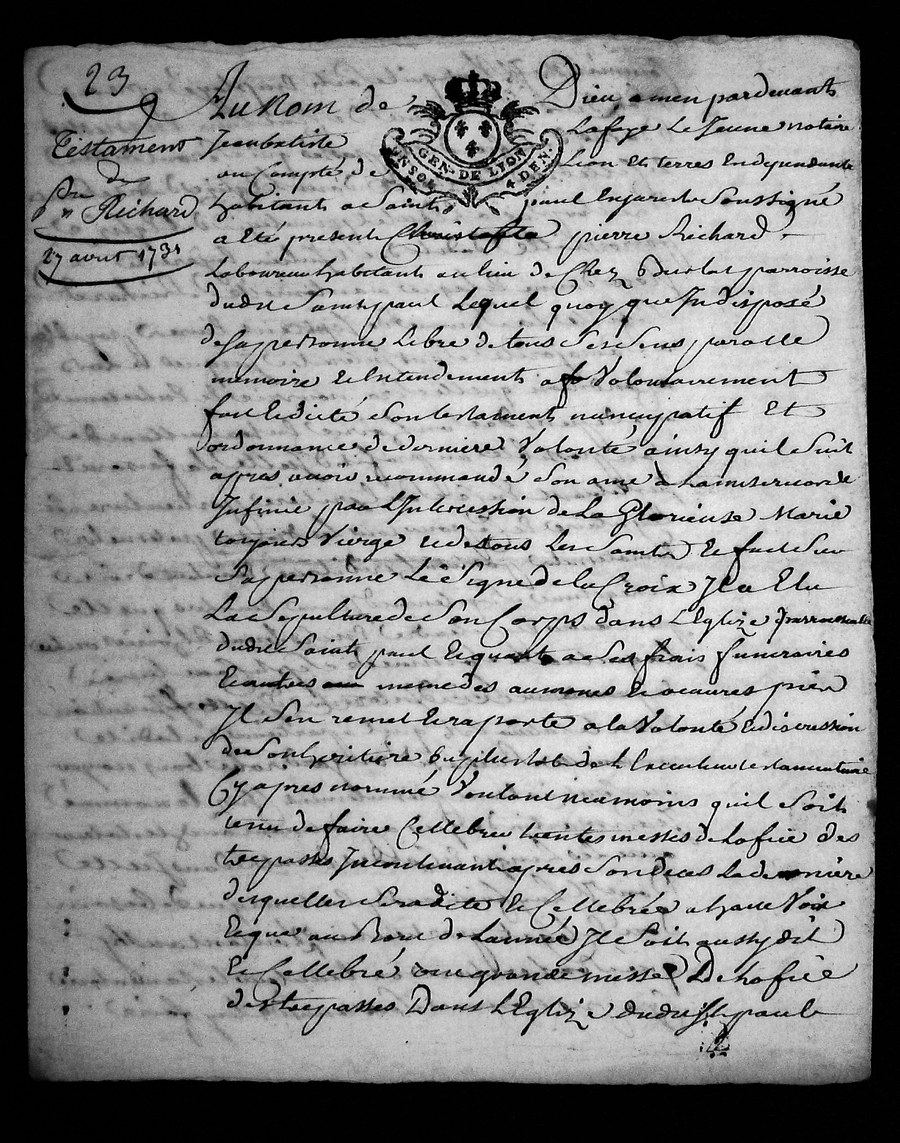 23
Testament
de
Pre Richard
27 avril 1731
Au Nom de Dieu, amen par devant
Jean batiste Lafaye Le Jeune notaire
au Compté de Lion Et terres En dependante
GEN. DE LYON
UN SOL 4 DEN.
habitant a Saint paul En jarest Soussigné
a Eté present pierre Richard
Laboureur habitant au lieu de Chez parroisse
dudt Saint paul Lequel quoy que Indisposé
de sa personne Libre de tous Ses Sens parolle
memoire et Entendement a Volontairement
fait et dicté Son testament nuncupatif Et
ordonnance de derniere Volonté ainsy quil Suit
apres avoir recommandé Son ame a La misericorde
Infinie par L'Intercession de La Glorieuse Marie
toujours Vierge et de tous Les Saints Et fait Sur
Sa personne Le Signe de la Croix Il a Elu
La Sepulture de Son Corps dans L'Eglize parroissialle
dudt Saint paul Et quant a Ses frais funeraires
Et autres meme des aumones Et oeuvres pies
Il Sen remet Et raporte a la Volonté Et discression
de Son heritiere
Cy apres nommé Voulant neamoins quil Soit
tenu de faire Cellebrer trente messes de Lofice des
trepassés Incontinant apres Son deces La derniere
desquelles Sera dite Et Cellebrée a haute Voix
Et que au Bout de Lannée Il Soit aussy dit
Et Cellebré une grande messe De Lofice
des trepassés Dans L'Eglize dudit St paul